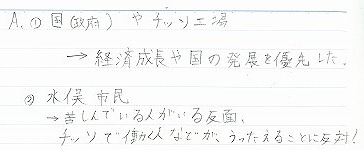 A. ① 国(政府) やチッソ工場
→ 経済成長や国の発展を優先した.
② 水俣市民
→ 苦しんでいる人がいる反面、
チッソで働く人などが、うったえることに反対!